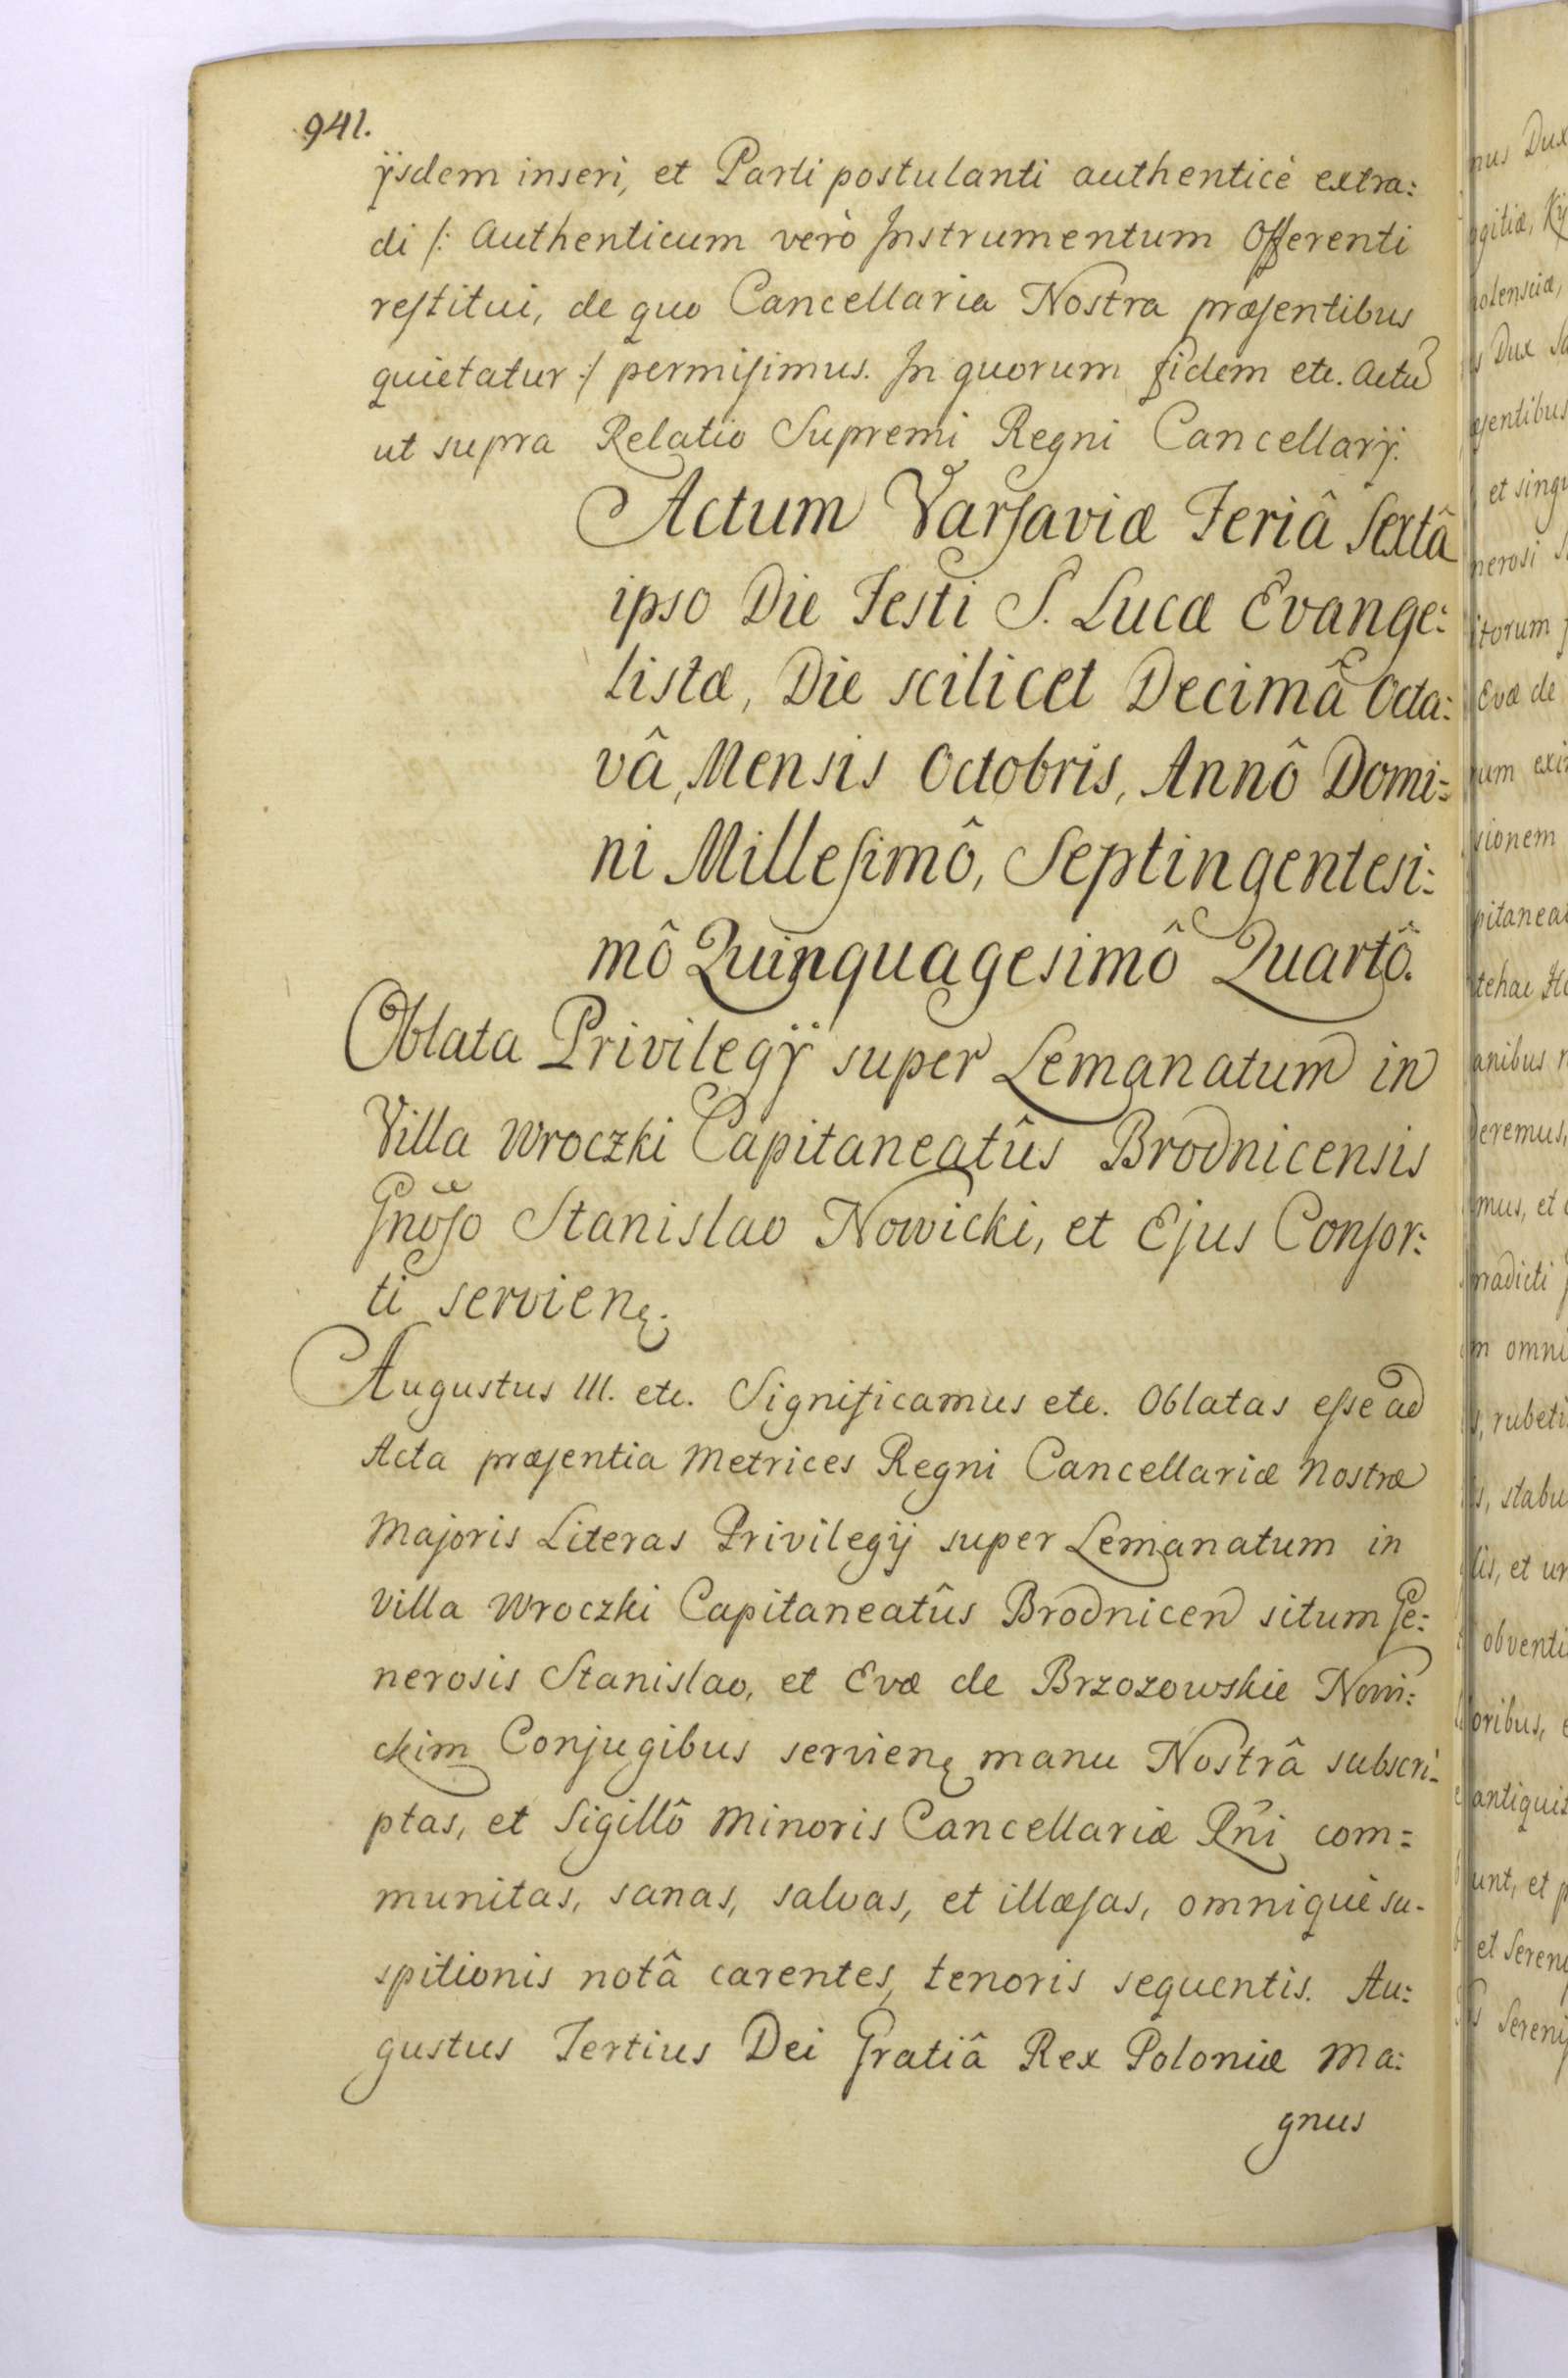 941.
ÿsdem inseri, et Parti postulanti authenticè extra:
di /: Authenticum verò Instrumentum Offerenti
reſtitui, de quo Cancellaria Nostra præſentibus
quietatur :/ permiſimus. In quorum fidem etc. Actu
ut supra Relatio Supremi Regni Cancellarÿ.
Actum Varſaviæ Feriâ Sextâ
ipso Die Festi S. Lucæ Evange:
listæ, Die scilicet Decimâ Octa:
vâ, Mensis Octobris, Annô Domi:
ni Milleſimô, Septingentesi:
mô Quinquagesimô Quartô.
Oblata Privilegÿ super Lemanatum in
Villa Wroczki Capitaneatûs Brodnicensis
Gnõſo Stanislao Nowicki, et Ejus Conſor:
ti servienę.
Augustus III. etc. Significamus etc. Oblatas eſse ad
Acta præſentia Metrices Regni Cancellariæ Nostræ
Majoris Literas Privilegij super Lemanatum in
Villa Wroczki Capitaneatûs Brodnicen situm Ge:
nerosis Stanislao, et Evæ de Brzozowskie Nowi:
ckim Conjugibus servienę manu Nostrâ subscri-
ptas, et Sigillô Minoris Cancellariæ Rñi com=
munitas, sanas, salvas, et illæſas, omniquè su-
spitionis notâ carentes, tenoris sequentis. Au:
gustus Tertius Dei Gratiâ Rex Poloniæ Ma:
gnus